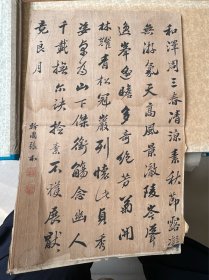 和澤周三春清涼素秋節露凝
無游氛天高風景澈陵岑聳
逸峯遙瞻多奇絕芳菊開
林耀青松冠巖列懷此貞秀
姿卓為霜下傑銜觴念幽人
千載撫爾訣檢素不獲展厭
竟良月
張